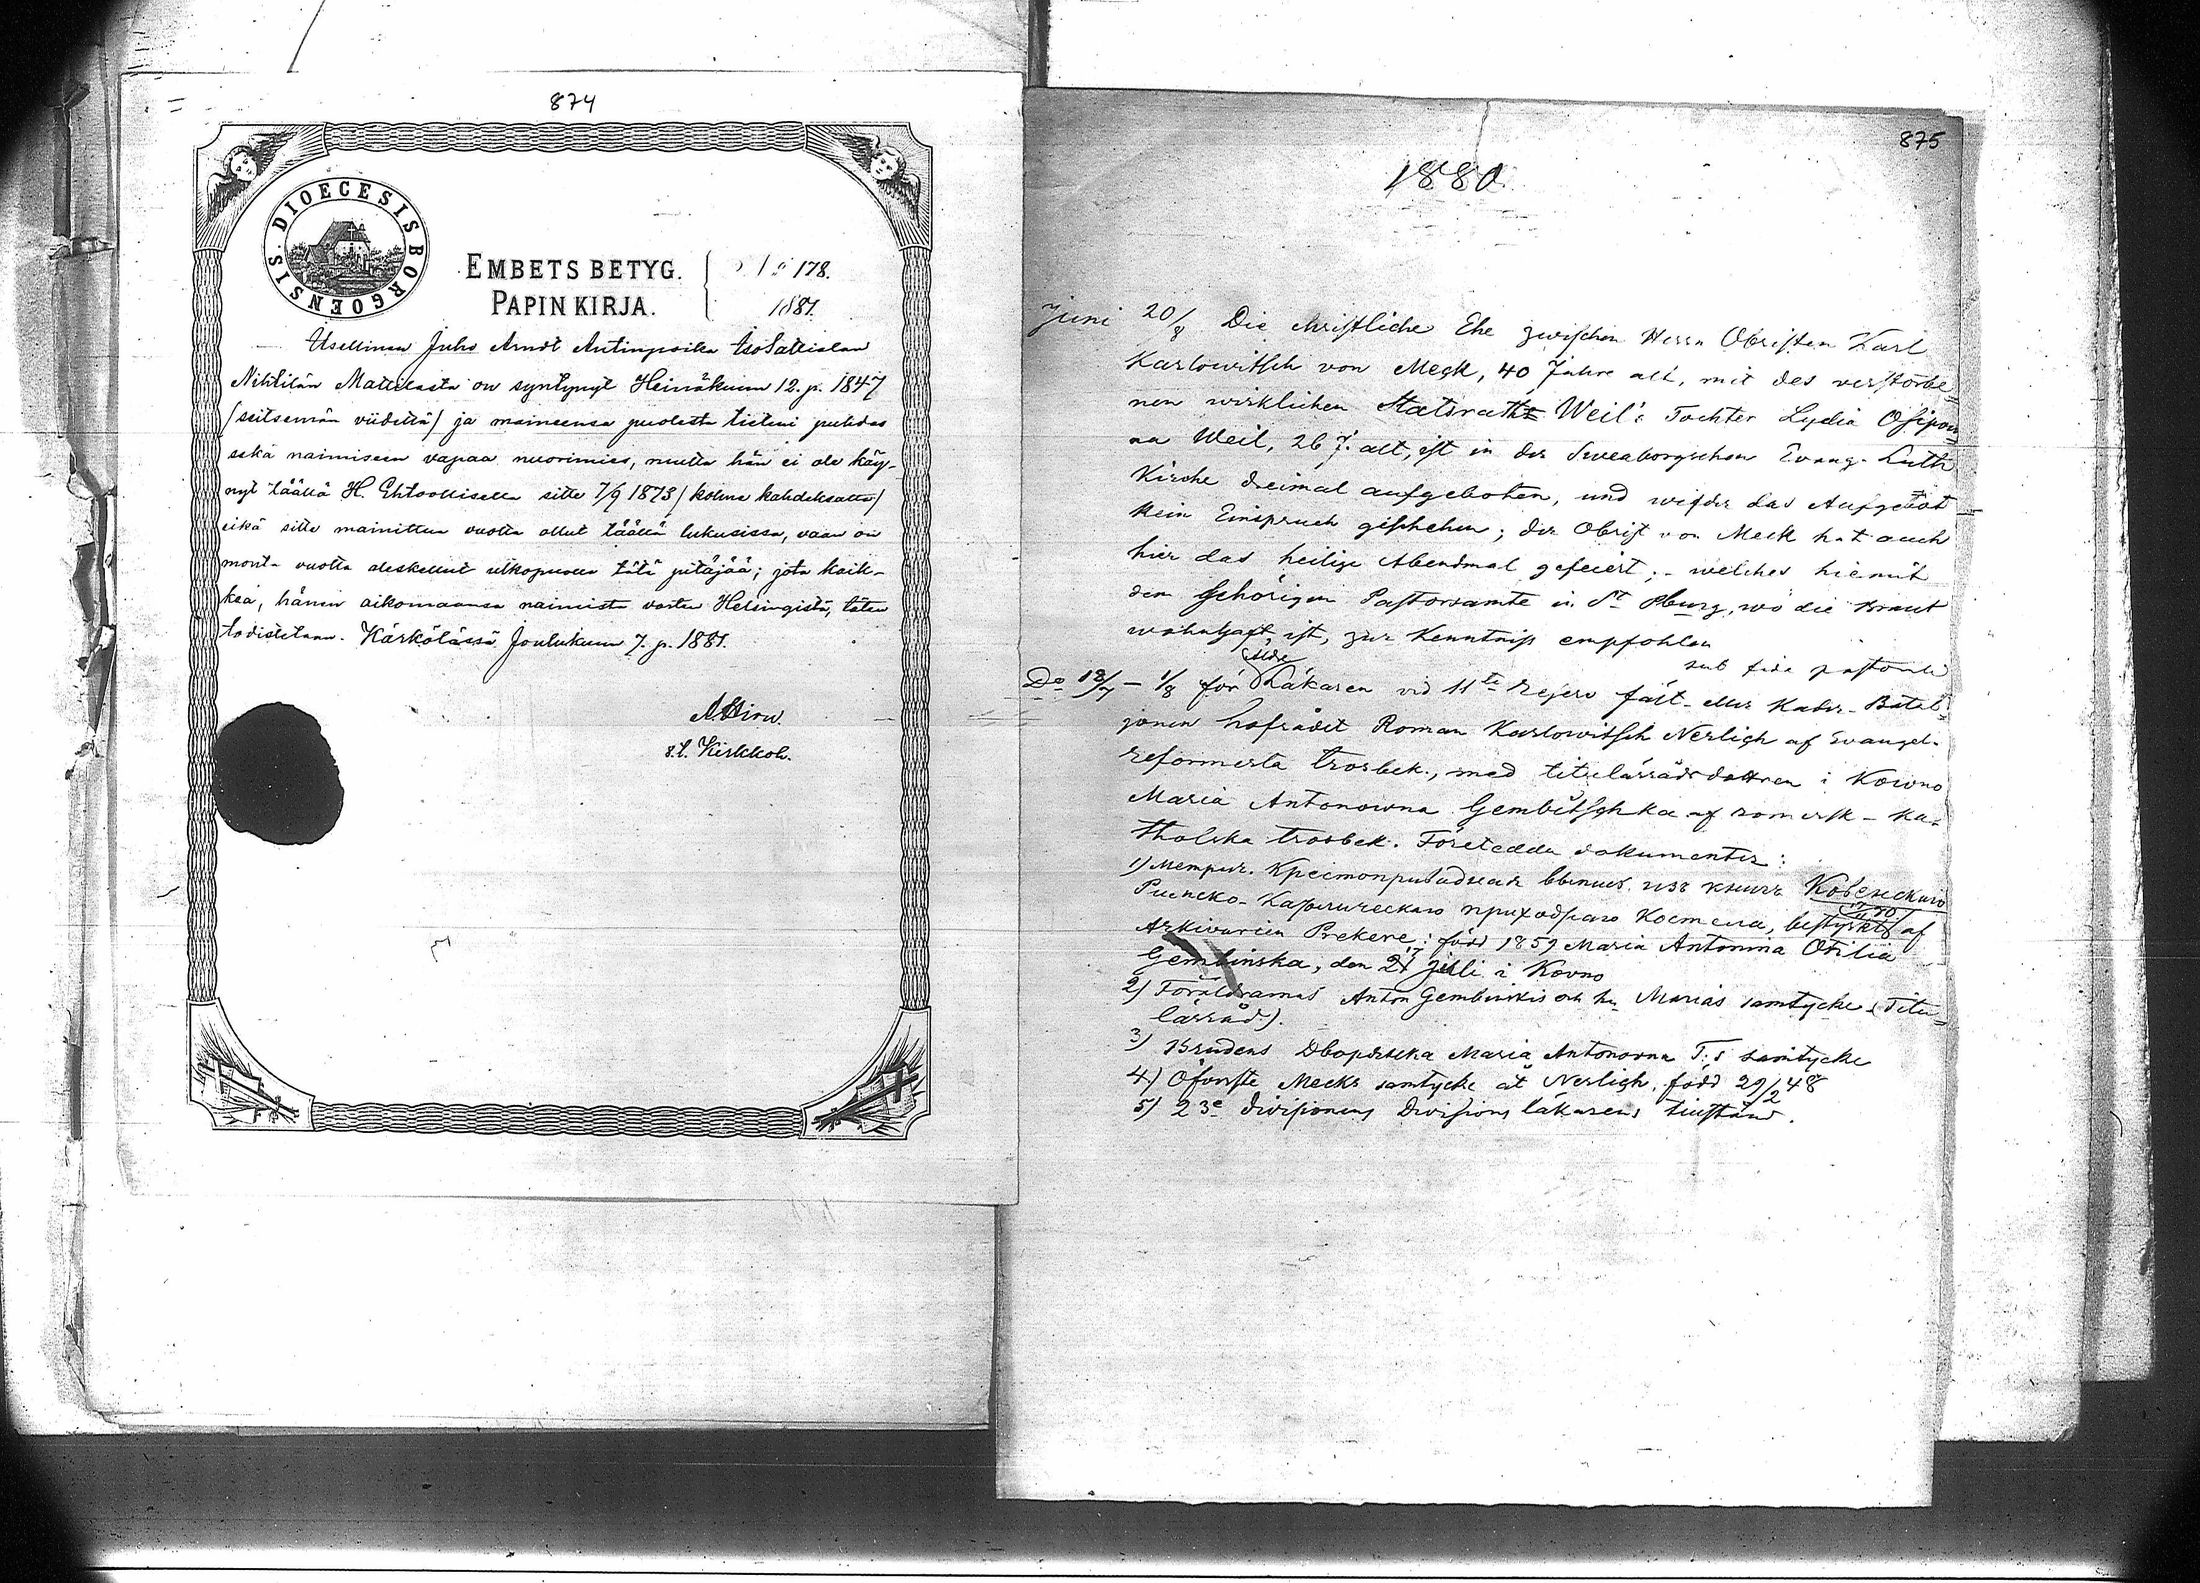 874
DIOECESIS BORGOENSIS.
EMBETS BETYG.
PAPIN KIRJA.
178.
1881.
Itsellinen Juho Arndt Antinpoika IsoSattialan
Nihtilän Mattilasta on syntynyt Heinäkuun 12. p. 1847
(seitsemän viidettä) ja maineensa puolesta tieteni puhdas
sekä naimiseen vapaa nuorimies, mutta hän ei ole käy-
nyt täällä H. Ehtoollisella sitte 7/9 1873 (kolme kahdeksatta)
eikä sitte mainittua vuotta ollut täällä lukusissa, vaan on
monta vuotta oleskellut ulkopuolla tätä pitäjää; jota kaik-
kea, hänen aikomaansa naimista varten Helsingistä, täten
todistetaan. Kärkölässä Joulukuun 7. p. 1881.
v.t. Kirkkoh.
875
1880.
Juni 20/8 Die christliche Ehe zwischen Herrn Obristen Karl
Karlowitsch von Meck, 40 Jahre alt, mit des verstorbe-
nen wirklichen Statsraths Weil's Tochter Lydia Osipow-
na Weil, 26 J. alt, ist in der Sveaborgschen Evang. Luth
Kirche dreimal aufgeboten, und wider das Aufgebot
kein Einspruch geschehen; der Obrist von Meck hat auch
hier das heilige Abendmal gefeiert; - welches hiemit
dem gehörigen Pastorsamte in St Pburg, wo die Braut
wohnhaft ist, zur Kenntniss empfohlen
sub fide pastorali
Do 18/7 - 1/8 för Läkaren vid 11te Reserv fäst- eller Kader-Batal-
jonen hofrådet Roman Karlowitsch Nerligh af Evangel.
reformerta trosbek., med titulärrådsdottren i Kowno
Maria Antonowna Gembitschka af romersk-ka-
tholska trosbek. Företedda dokumenter:
1) Метрич. изъ книгъ Ковенскаго
Римско-Католическаго приходскаго Костела, bestyrkt af
Arkivarien Prekere: född 1859 Maria Antonina Otilia
Gembinska, den 21 juli i Kovno
2) Föräldrarnas Anton Gembinskis och h. Marias samtycke (Titu-
lärråd).
3) Brudens Дворянка Maria Antonovna T:s samtycke
4) Öfverste Mecks samtycke åt Nerligh, född 29/2 48
5) 23e divisionens Divisions läkarens tillstånd.